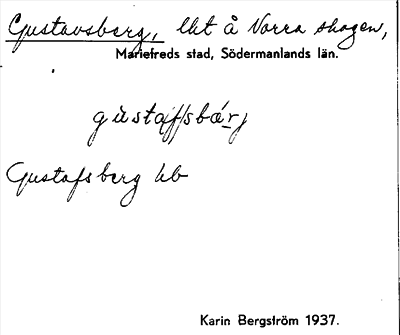 Gustavsberg, lht å Norra skogen,
Mariefreds stad, Södermanlands län.
Gustafsberg hb
Karin Bergström 1937.